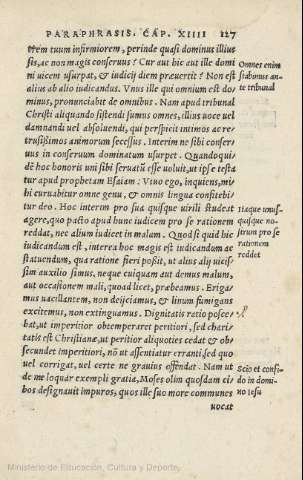 PARAPHRASIS. CAP. XIIII 127
trem tuum infirmiorem, perinde quasi dominus illius
sis, ac non magis conseruus? Cur aut hic aut ille domi
ni uicem usurpat, & iudicij diem præuertit? Non est
alius ab alio iudicandus. Vnus ille qui omnium est do=
minus, pronunciabit de omnibus. Nam apud tribunal
Christi aliquando sistendi sumus omnes, illius uoce uel
damnandi uel absoluendi, qui perspicit intimos ac re=
trusissimos animorum secessus. Interim ne sibi conser=
uus in conseruum dominatum usurpet. Quando qui
dē hoc honoris uni sibi seruatū esse uoluit, ut ipse testa
tur apud prophetam Esaiam: Viuo ego, inquiens, mi=
hi curuabitur omne genu, & omnis lingua confitebi=
tur deo. Hoc interim pro sua quisque uirili studeat
agere, quo pacto apud hunc iudicem pro se rationem
reddat, nec alium iudicet in malam. Quod si quid hic
iudicandum est, interea hoc magis est iudicandum ac
statuendum, qua ratione fieri possit, ut alius alij uicis=
sim auxilio simus, neque cuiquam aut demus malum,
aut occasionem mali, quoad licet, præbeamus. Eriga=
mus uacillantem, non deijciamus, & linum fumigans
excitemus, non extinguamus. Dignitatis ratio posce=
bat, ut imperitior obtemperaret peritiori, sed chari=
tatis est Christianæ, ut peritior aliquoties cedat & ob
secundet imperitiori, nō ut assentiatur erranti, sed quo
uel corrigat, uel certe ne grauius offendat. Nam ut
de me loquar exempli gratia, Moses olim quosdam ci=
bos designauit impuros, quos ille suo more communes
uocat
Omnes enim
stabimus an=
te tribunal
Itaque unus=
quisque no=
strum pro se
rationem
reddet
Scio et confi=
do in domi=
no Iesu
Ministerio de Educación, Cultura y Deporte.